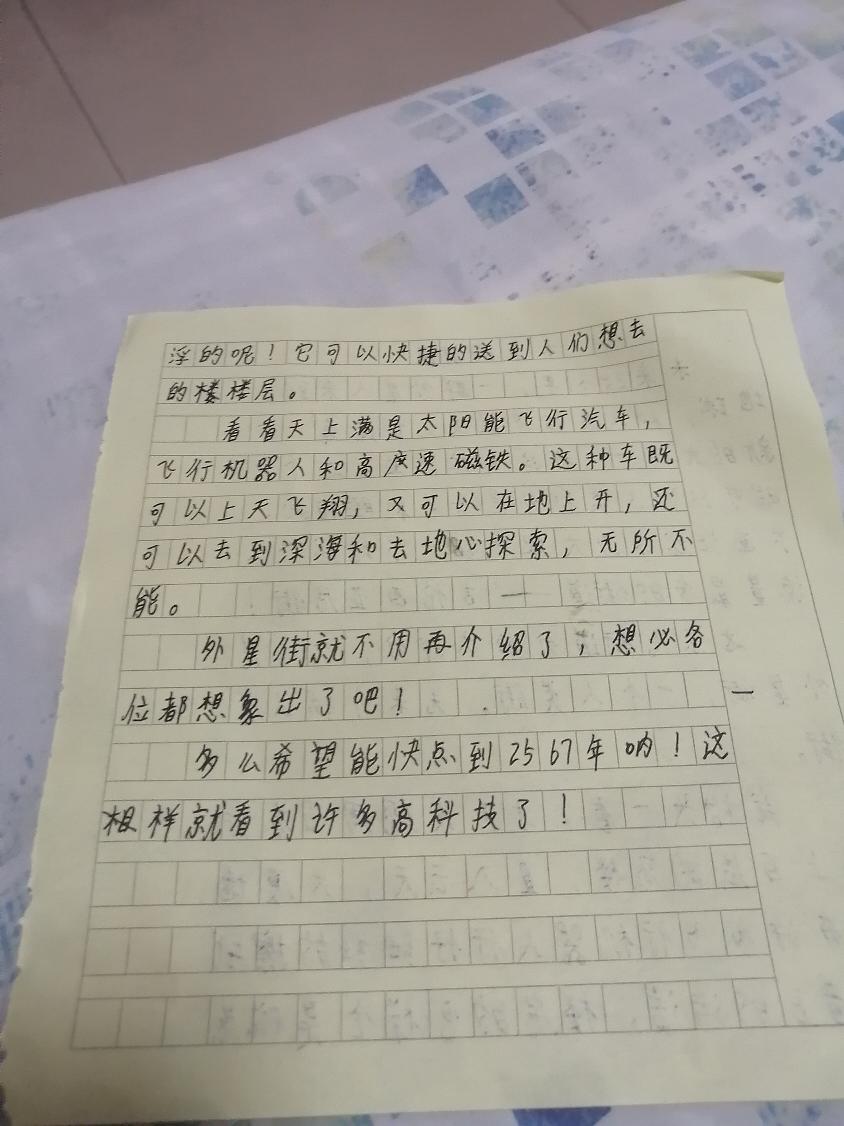 浮的呢！它可以快捷的送到人们想去
的楼楼层。
看看天上满是太阳能飞行汽车，
飞行机器人和高度速磁铁。这种车既
可以上天飞翔，又可以在地上开，还
可以去到深海和去地心探索，无所不
能。
外星街就不用再介绍了，想必各
位都想象出了吧！
多么希望能快点到2567年呐！这
样就看到许多高科技了！